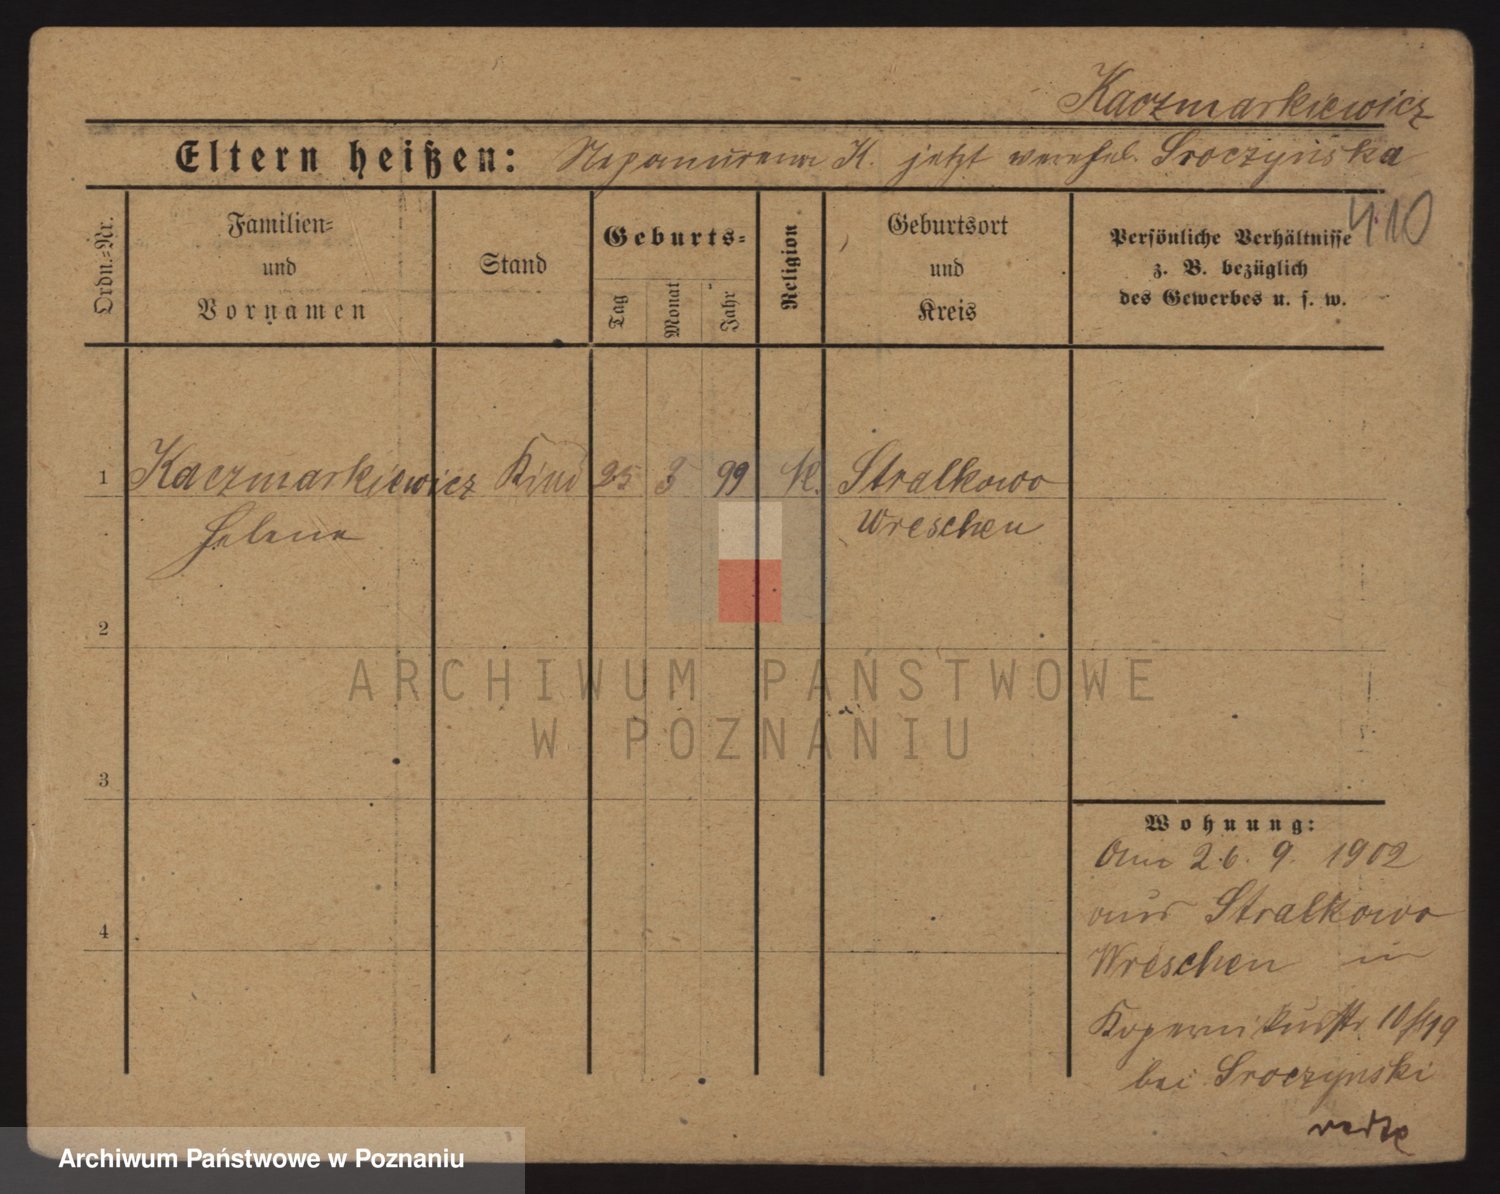 Kaczmarkiewicz
Eltern heißen: Nepomucena K. jetzt verehel. Sroczyńska
410
Ordn.-Nr.
Familien-
und
Vornamen
Stand
Geburts-
Tag
Monat
Jahr
Religion
Geburtsort
und
Kreis
Persönliche Verhältnisse
z. B. bezüglich
des Gewerbes u. s. w.
1 Kaczmarkiewicz Kind 25 3 99 K. Stralkowo
Helene Wreschen
2
ARCHIWUM PAŃSTWOWE
W POZNANIU
3
Wohnung:
Am 26. 9. 1902
aus Stralkowo
4
Wreschen in
Kopernikusstr 10/19
bei Sroczynski
Archiwum Państwowe w Poznaniu